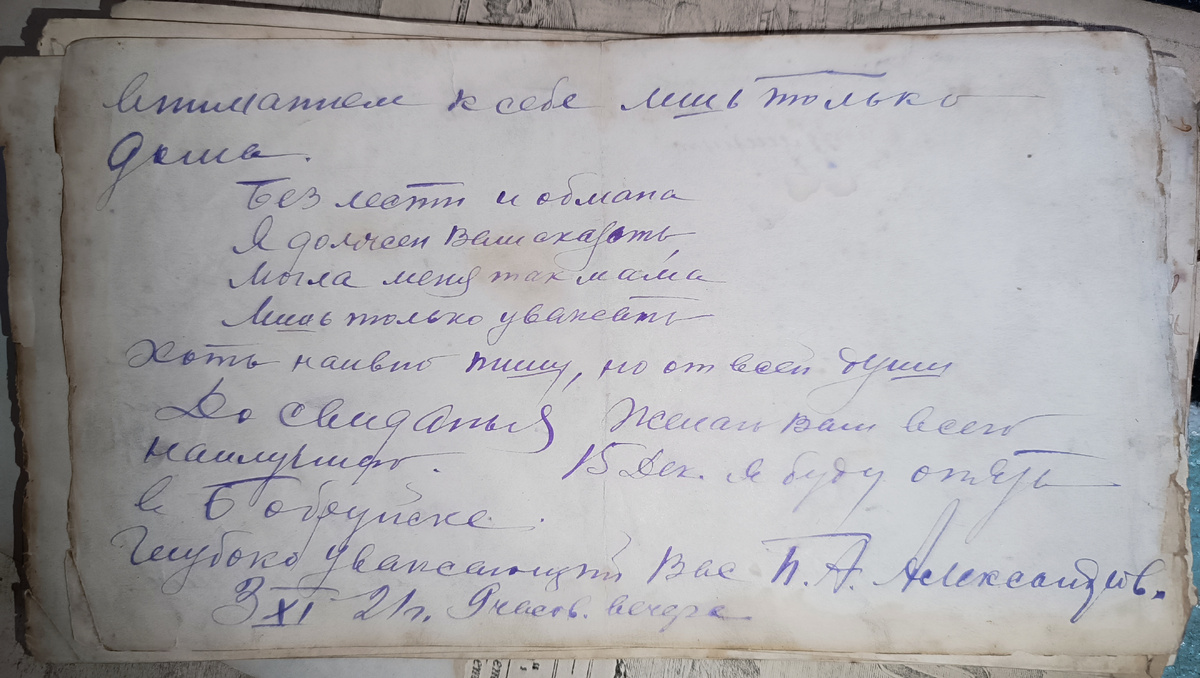 вниманием к себе лишь только
дома.
Без лести и обмана
Я должен Вам сказать
Могла меня так мама
Лишь только уважать
Хоть наивно пишу, но от всей души
До свиданья Желаю Вам всего
наилучшего. 15 Дек. я буду опять
в Бобруйске.
Глубоко уважающий Вас П. А. Александров.
3 XI 21 г. 9 часов. вечера